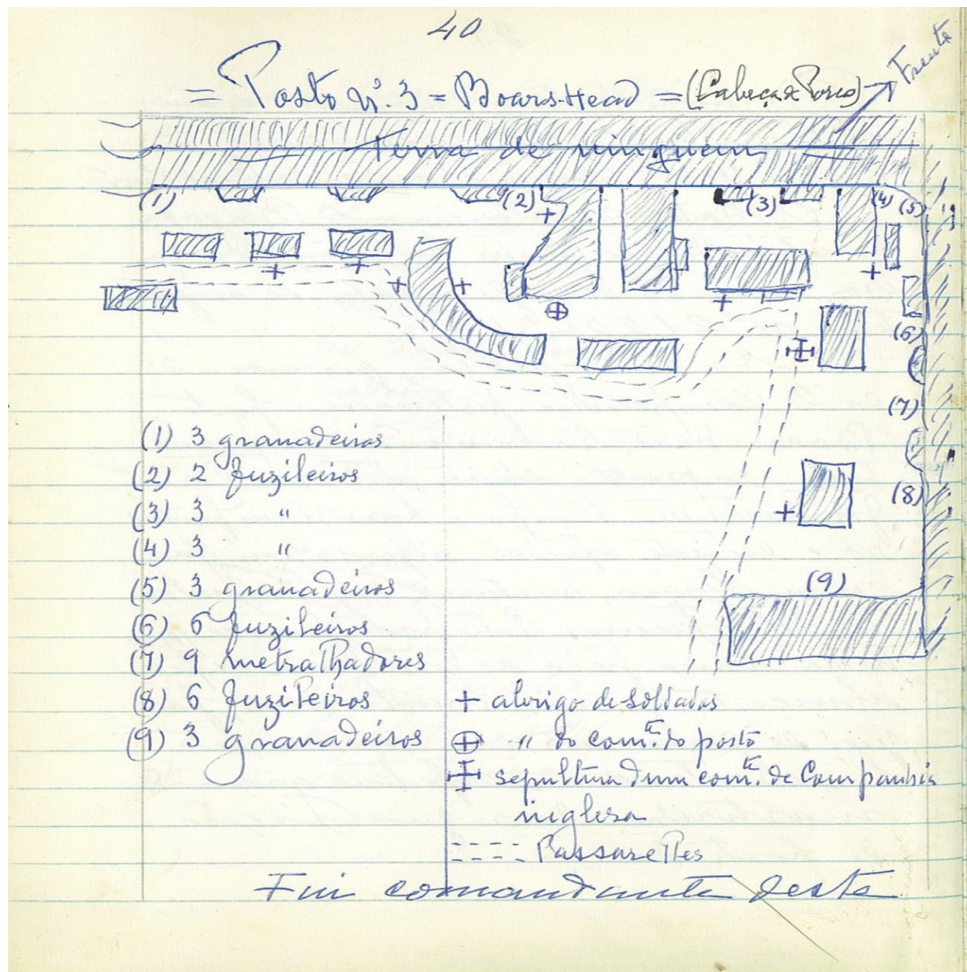 40
= Posto nº. 3 = Boars-Head = (Cabeça de Porco) =
Frente
Terra de ninguem
(1) (2) (3) (4) (5)
(6)
(7)
(8)
(9)
(1) 3 granadeiros
(2) 2 fuzileiros
(3) 3 "
(4) 3 "
(5) 3 granadeiros
(6) 6 fuzileiros
(7) 9 metralhadores
(8) 6 fuzileiros
(9) 3 granadeiros
+ abrigo de soldados
⊕ " do comte. do posto
sepultura dum comte. de Companhia
inglesa
---- Passarelles
Fui comandante deste